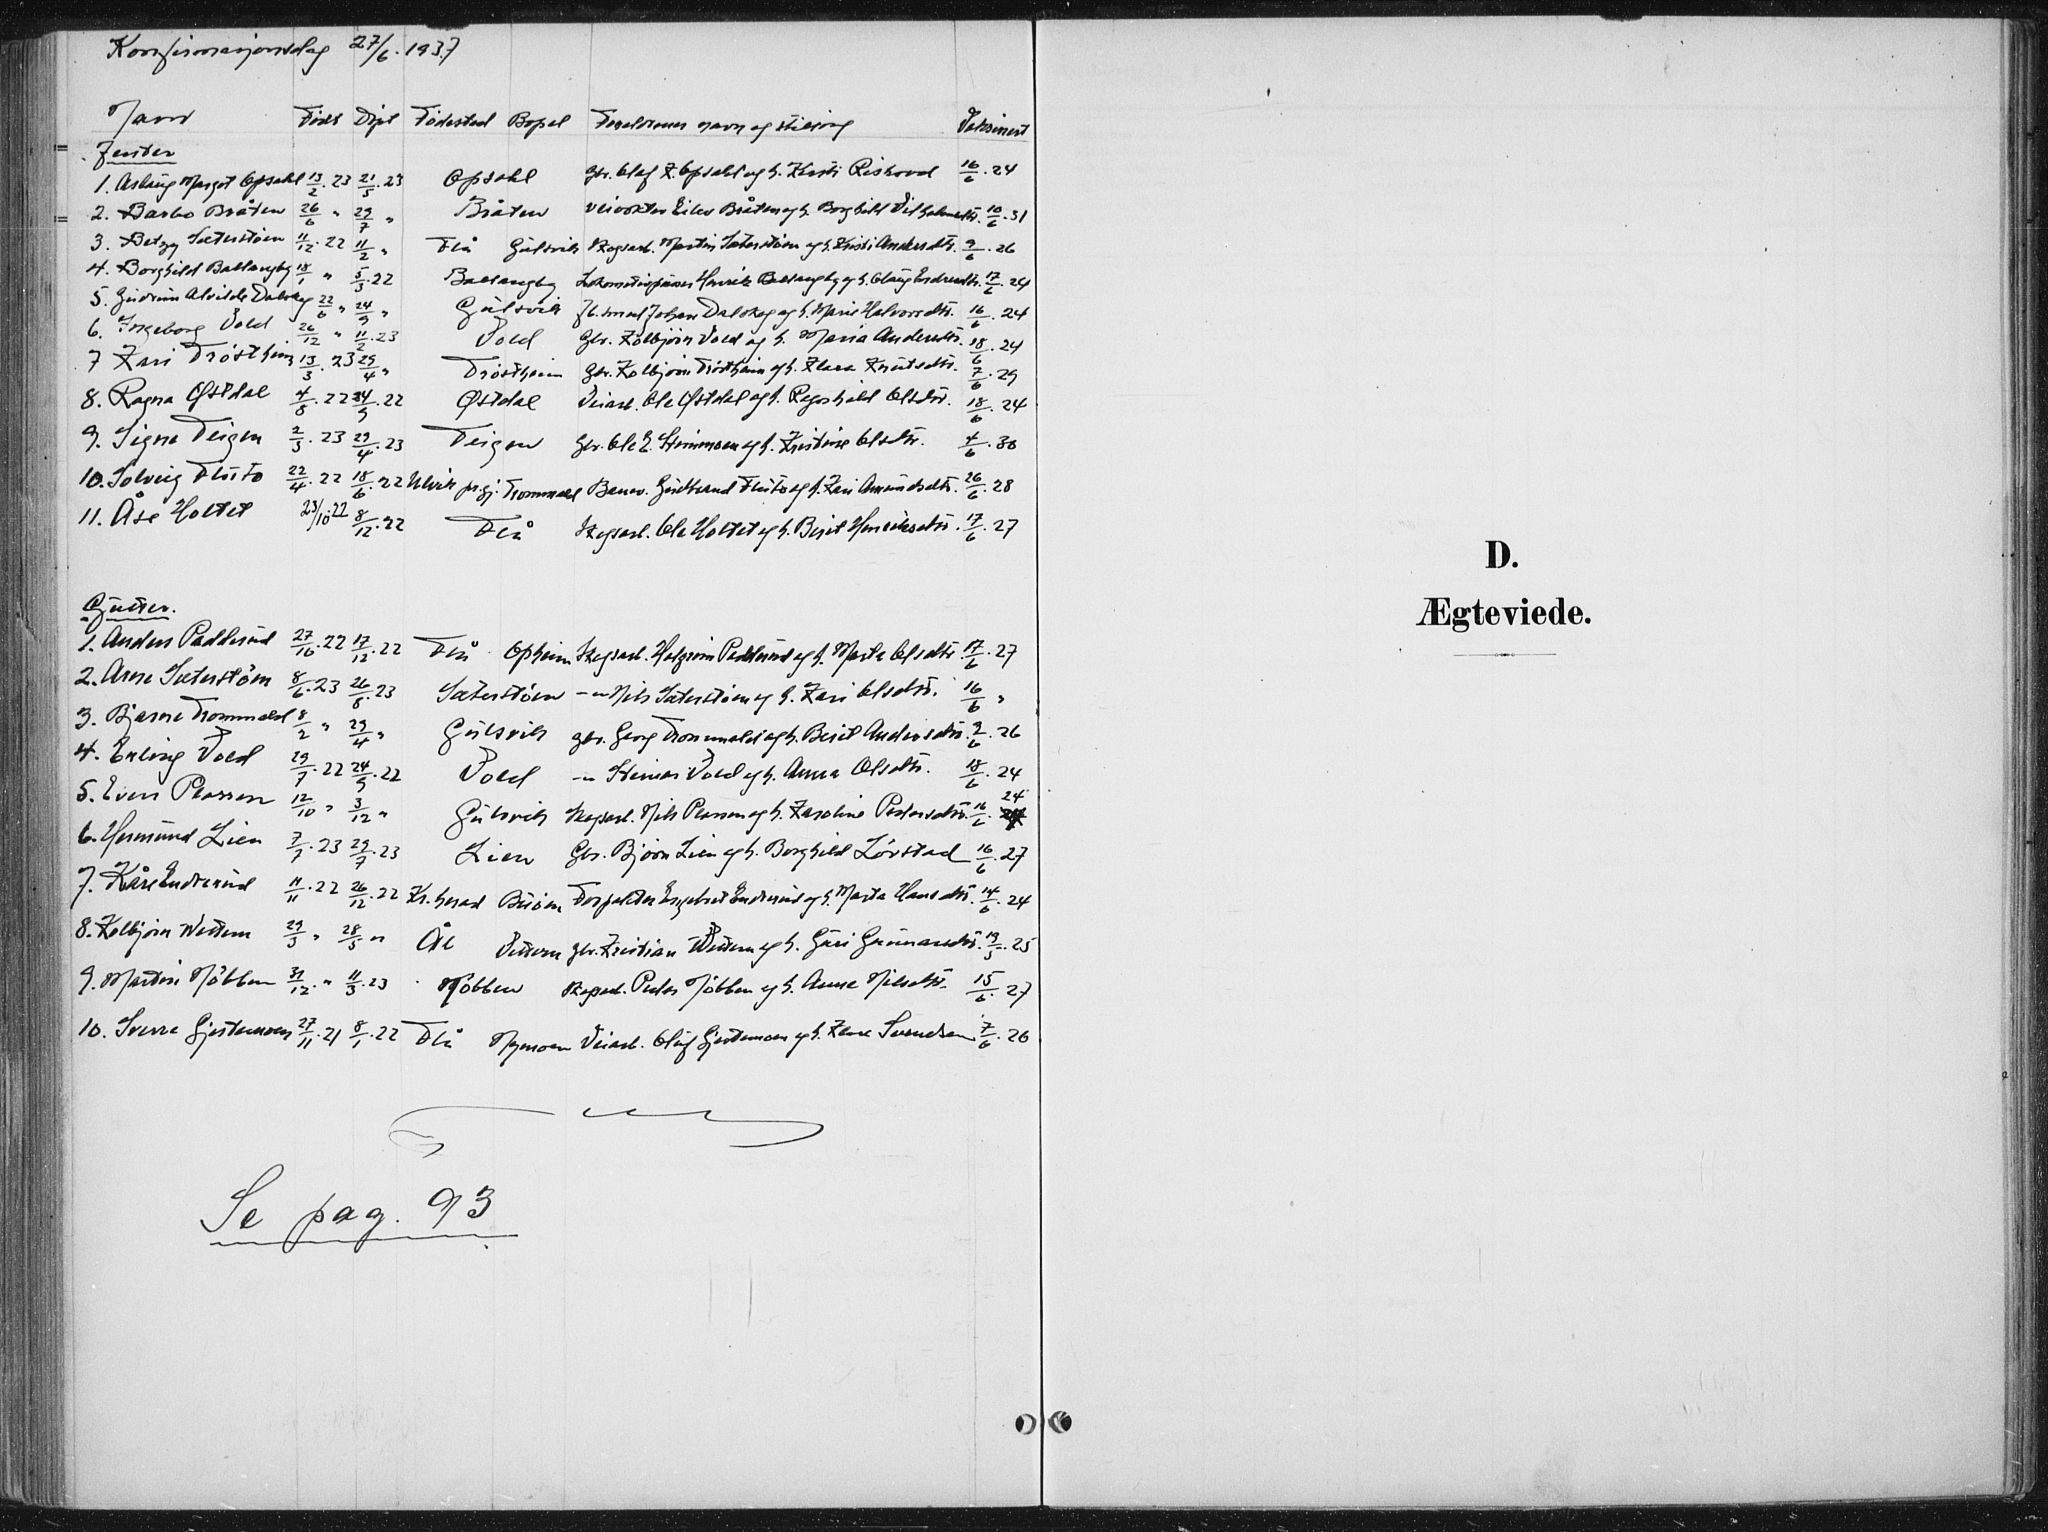 Konfirmasjonsdag 27/6. 1937
Navn Født Døpt Fødested Bopel Foreldrenes navn og stilling Vaksinert
Jenter
1. Aslaug Margot Opsahl 13/2. 23 21/5. 23 Opsahl Gbr. Olaf K. Opsahl og h. Kirsti 16/6. 24
2. Barbo Bråten 26/6 " 29/7 " Bråten Veivokter Eilev Bråten og h. Borghild Vilhelmsdtr. 10/6. 31
3. Betzy Sæterstøen 11/12. 22 11/2 " Flå Gulsvik Skogsarb. Martin Sæterstøen og h. Kristi Andersdtr. 9/6. 26
4. Borghild Ballangby 18/1 " 5/3. 22 Ballangby Henrik Ballangby og h. Olaug 17/6. 24
5. Gudrun Alvilde Dalskog 22/6 " 24/9 " Gulsvik Johan Dalskog og h. Marie Halvorsdtr. 16/6. 24
6. Ingeborg Vold 26/12 " 11/2. 23 Vold Gbr. Kolbjørn Vold og h. Maria Andersdtr. 18/6. 24
7 Kari Trøstheim 13/3. 23 29/4 " Trøstheim Gbr. Kolbjørn Trøstheim og h. Klara Knutsdtr. 7/6. 29
8. Ragna Østdal 4/8. 22 24/9. 22 Østdal Veiarb. Ole Østdal og h. Ragnhild Olsdtr. 18/6. 24
9. Signe Teigen 2/3. 23 29/4. 23 Teigen Gbr. Ole E. og h. Kristine Olsdtr. 4/6. 30
10. Solveig Fluto 22/4. 22 18/6. 22 Ulvik pr.gj. Trommald Banev. Gudbrand Fluto og h. Kari Amundsdtr. 26/6. 28
11. Åse Holtet 23/10 22 8/12. 22 Flå Skogsarb. Ole Holtet og h. Birit Henriksdtr. 17/6. 27
Gutter.
1. Anders Paddlund 27/10. 22 17/12. 22 Flå Opheim Skogsarb. Halgrim Paddlund og h. Marta Olsdtr. 17/6. 27
2. Arne Sæterstøen 8/6. 23 26/8. 23 Sæterstøen -"- Nils Sæterstøen og h. Kari Olsdtr. 16/6 "
3. Bjarne Trommald 8/2 " 29/4 " Gulsvik gbr. Georg Trommald og h. Birit Andersdtr. 9/6. 26
4. Erling Vold 29/7. 22 24/9. 22 Vold -"- Steinar Vold og h. Anna Olsdtr. 18/6. 24
5. Even Plassen 12/10 " 3/12 " Gulsvik Skogsarb. Nils Plassen og h. Karoline Pedersdtr. 16/6. 24
6. Hermund Lien 7/7. 23 29/7. 23 Lien Gbr. Bjørn Lien og h. Borghild Lövstad 16/6. 27
7. Kåre Enderud 11/11. 22 26/12. 22 Kr.herad Buøen Forpakter Engebret Enderud og h. Marta Hansdtr. 14/6. 24
8. Kolbjørn Wettern 29/3 " 28/5 " Ål Vettern gbr. Kristian Wettern og h. Guri Gunnarsdtr. 19/5. 25
9. Martin Nöbben 31/12. " 11/3. 23 Nöbben Skogsarb. Peder Nöbben og h. Anne Nilsdtr. 15/6. 27
10. Sverre Gjestemoen 27/11. 21 8/1. 22 Flå Nymoen Veiarb. Oluf Gjestemoen og h. Svendsen 7/6. 26
Se pag. 93
D.
Ægteviede.